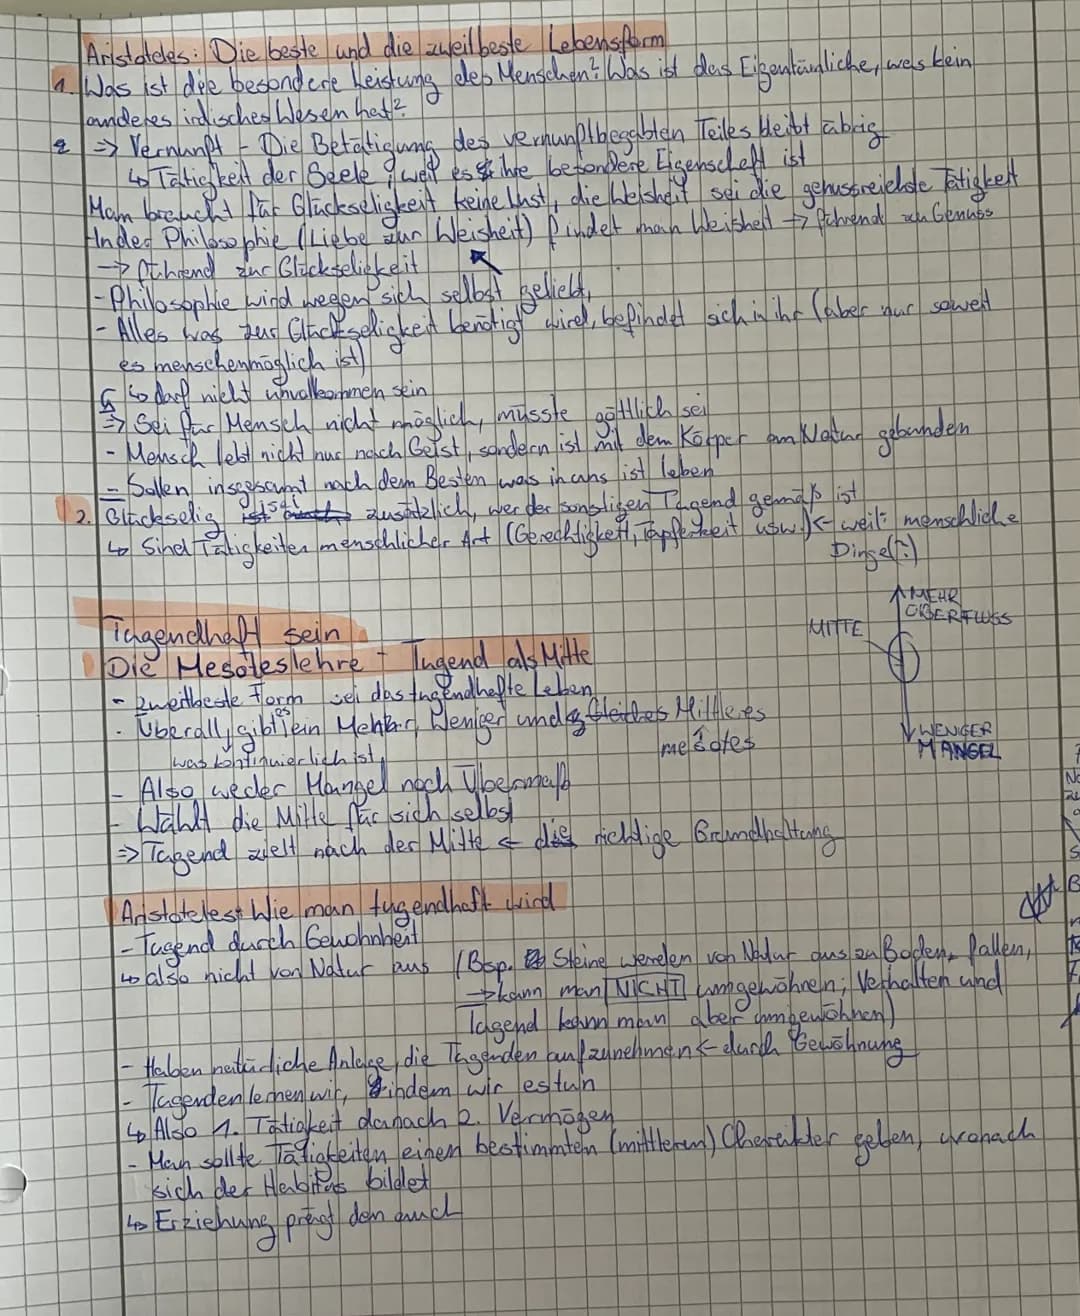 Aristoteles: Die beste und die zweitbeste Lebensform
1. Was ist die besondere Leistung des Menschen? Was ist das Eigentümliche, was kein
anderes irdisches Wesen hat?
=> Vernunft - Die Betätigung des vernunftbegabten Teiles bleibt übrig
↳ Tätigkeit der Seele, weil es ihre besondere Eigenschaft ist
Man braucht für Glückseligkeit keine Lust, die Weisheit sei die genussreichste Tätigkeit
In der Philosophie (Liebe zur Weisheit) findet man Weisheit → führend zu Genuss
→ führend zur Glückseligkeit
- Philosophie wird wegen sich selbst geliebt,
- Alles was zur Glückseligkeit benötigt wird, befindet sich in ihr (aber nur soweit
es menschenmöglich ist)
↳ darf nicht unvollkommen sein
=> Sei für Mensch nicht möglich, müsste göttlich sei
- Mensch lebt nicht nur nach Geist, sondern ist mit dem Körper an Natur gebunden
- Sollen insgesamt nach dem Besten was in uns ist leben
2. Glückselig ist zusätzlich, wer der sonstigen Tugend gemäß ist
↳ Sind Tätigkeiten menschlicher Art (Gerechtigkeit, Tapferkeit usw.) ← weil: menschliche
Dinge(?)
↑ MEHR
ÜBERFLUSS
MITTE
Tugendhaft sein
Die Mesoteslehre - Tugend als Mitte
- zweitbeste Form sei das tugendhafte Leben
- Überall, gibt es ein Mehr, Weniger und Gleiches Mittleres
was kontinuierlich ist,
mesotes
↓ WENIGER
MANGEL
- Also weder Mangel noch Übermaß
- Wählt die Mitte für sich selbst
=> Tugend zielt nach der Mitte ← die richtige Grundhaltung
Aristoteles: Wie man tugendhaft wird
- Tugend durch Gewohnheit
↳ also nicht von Natur aus (Bsp. Steine werden von Natur aus zu Boden fallen,
→ kann man NICHT umgewöhnen; Verhalten und
Tugend kann man aber umgewöhnen)
- Haben natürliche Anlage, die Tugenden aufzunehmen ← durch Gewöhnung
- Tugenden lernen wir, indem wir es tun
↳ Also 1. Tätigkeit danach 2. Vermögen
- Man sollte Tätigkeiten einen bestimmten (mittleren) Charakter geben, wonach
sich der Habitus bildet
↳ Erziehung prägt den auch